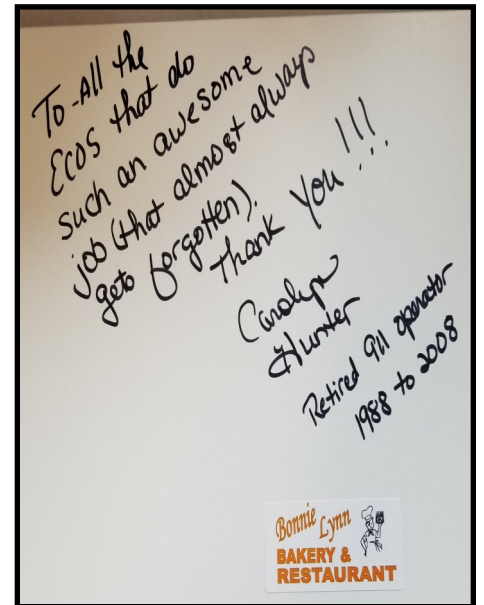 To-All the
ECOS that do
such an awesome
job (that almost always
gets forgotten).
Thank You!!!
Carolyn
Hunter
Retired 911 operator
1988 to 2008
Bonnie Lynn
BAKERY &
RESTAURANT